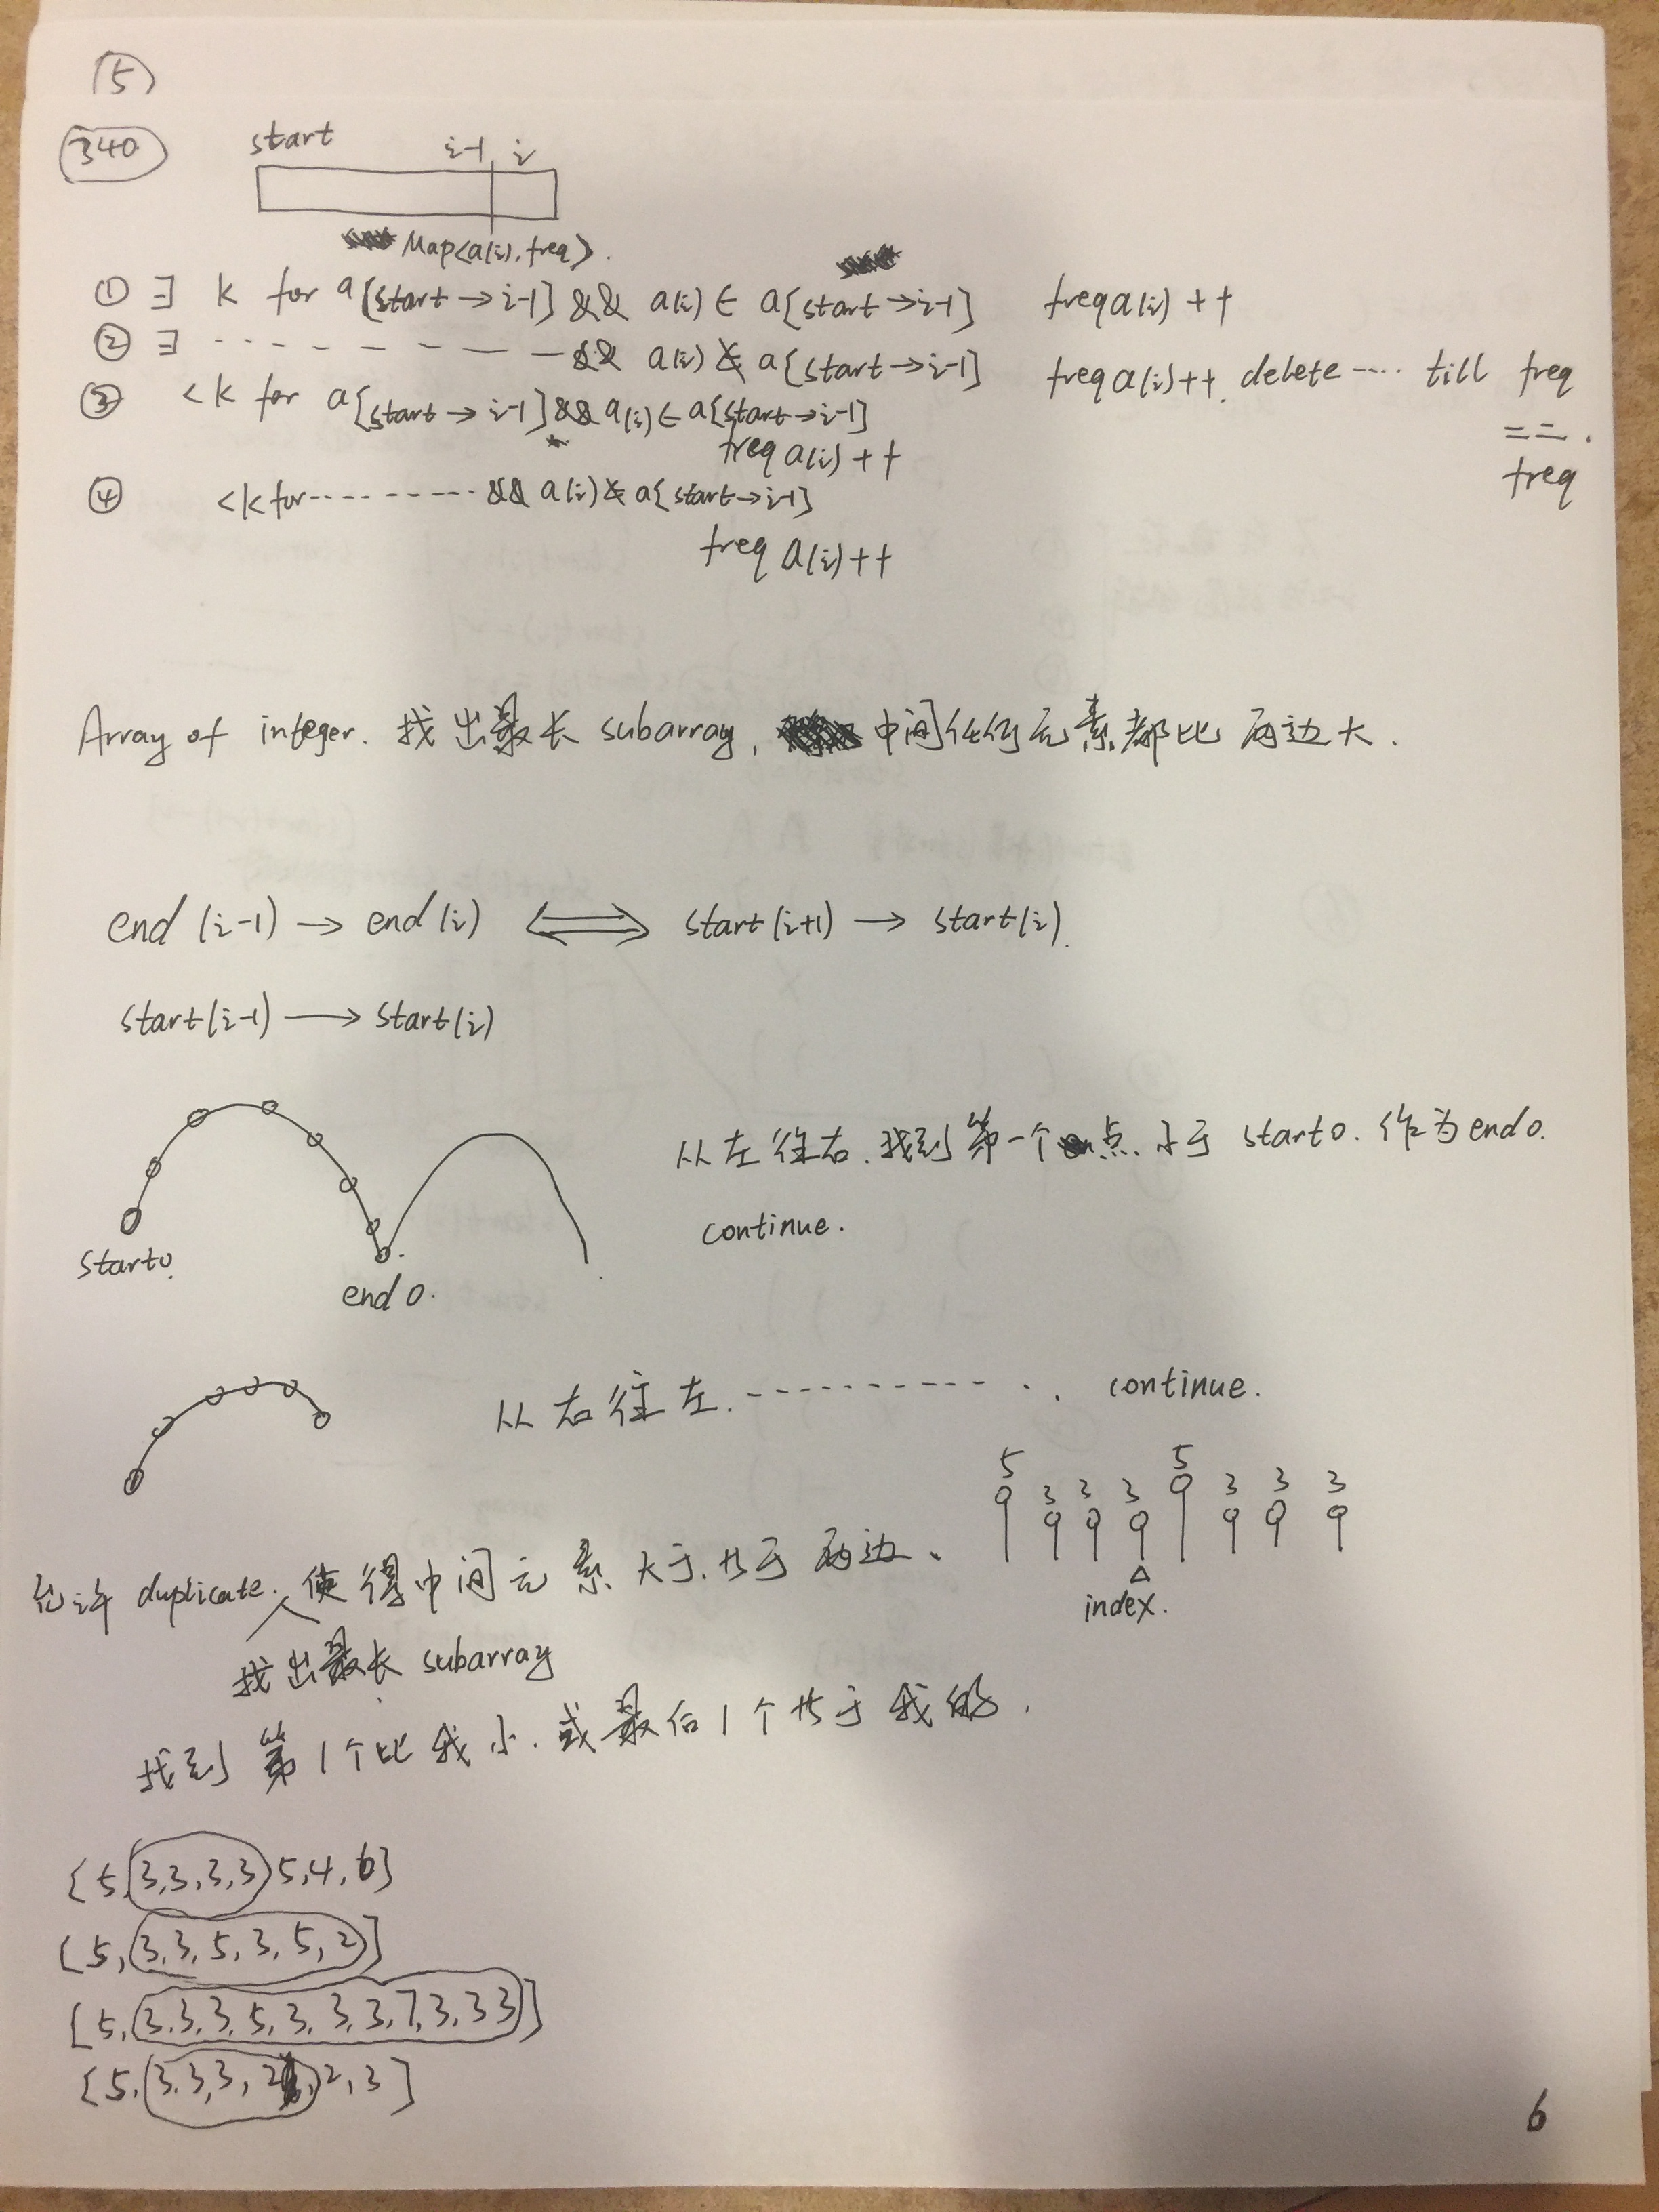 (5)
340
start i-1 i
Map<a(i), freq>.
① ∃ k for a[start→i-1] && a(i) ∈ a[start→i-1] freq a(i)++
② ∃ - - - - - - - && a(i) ∉ a[start→i-1] freq a(i)++, delete .... till freq
== .
freq
③ <k for a[start→i-1] && a(i) ∈ a[start→i-1]
freq a(i)++
④ <k for - - - - - - - - - && a(i) ∉ a[start→i-1]
freq a(i)++
Array of integer. 找出最长 subarray, 中间任何元素都比两边大.
end (i-1) → end(i) ⟺ start(i+1) → start(i).
start(i-1) → start(i)
从左往右. 找到第一个点. 小于 start0. 作为 end0.
continue.
start0.
end 0.
从右往左. - - - - - - - - - - - . . continue.
5 3 3 3 5 3 3 3
index.
允许 duplicate. 使得中间元素大于.等于两边.
找出最长 subarray
找到第1个比我小. 或最后1个等于我的.
{5, 3,3,3,3, 5,4,6}
[5, 3,3, 5, 3, 5, 2]
[5, 3,3,3,5,3,3,3,7,3,3 3]
{5, 3,3,3, 2, 2, 3]
6